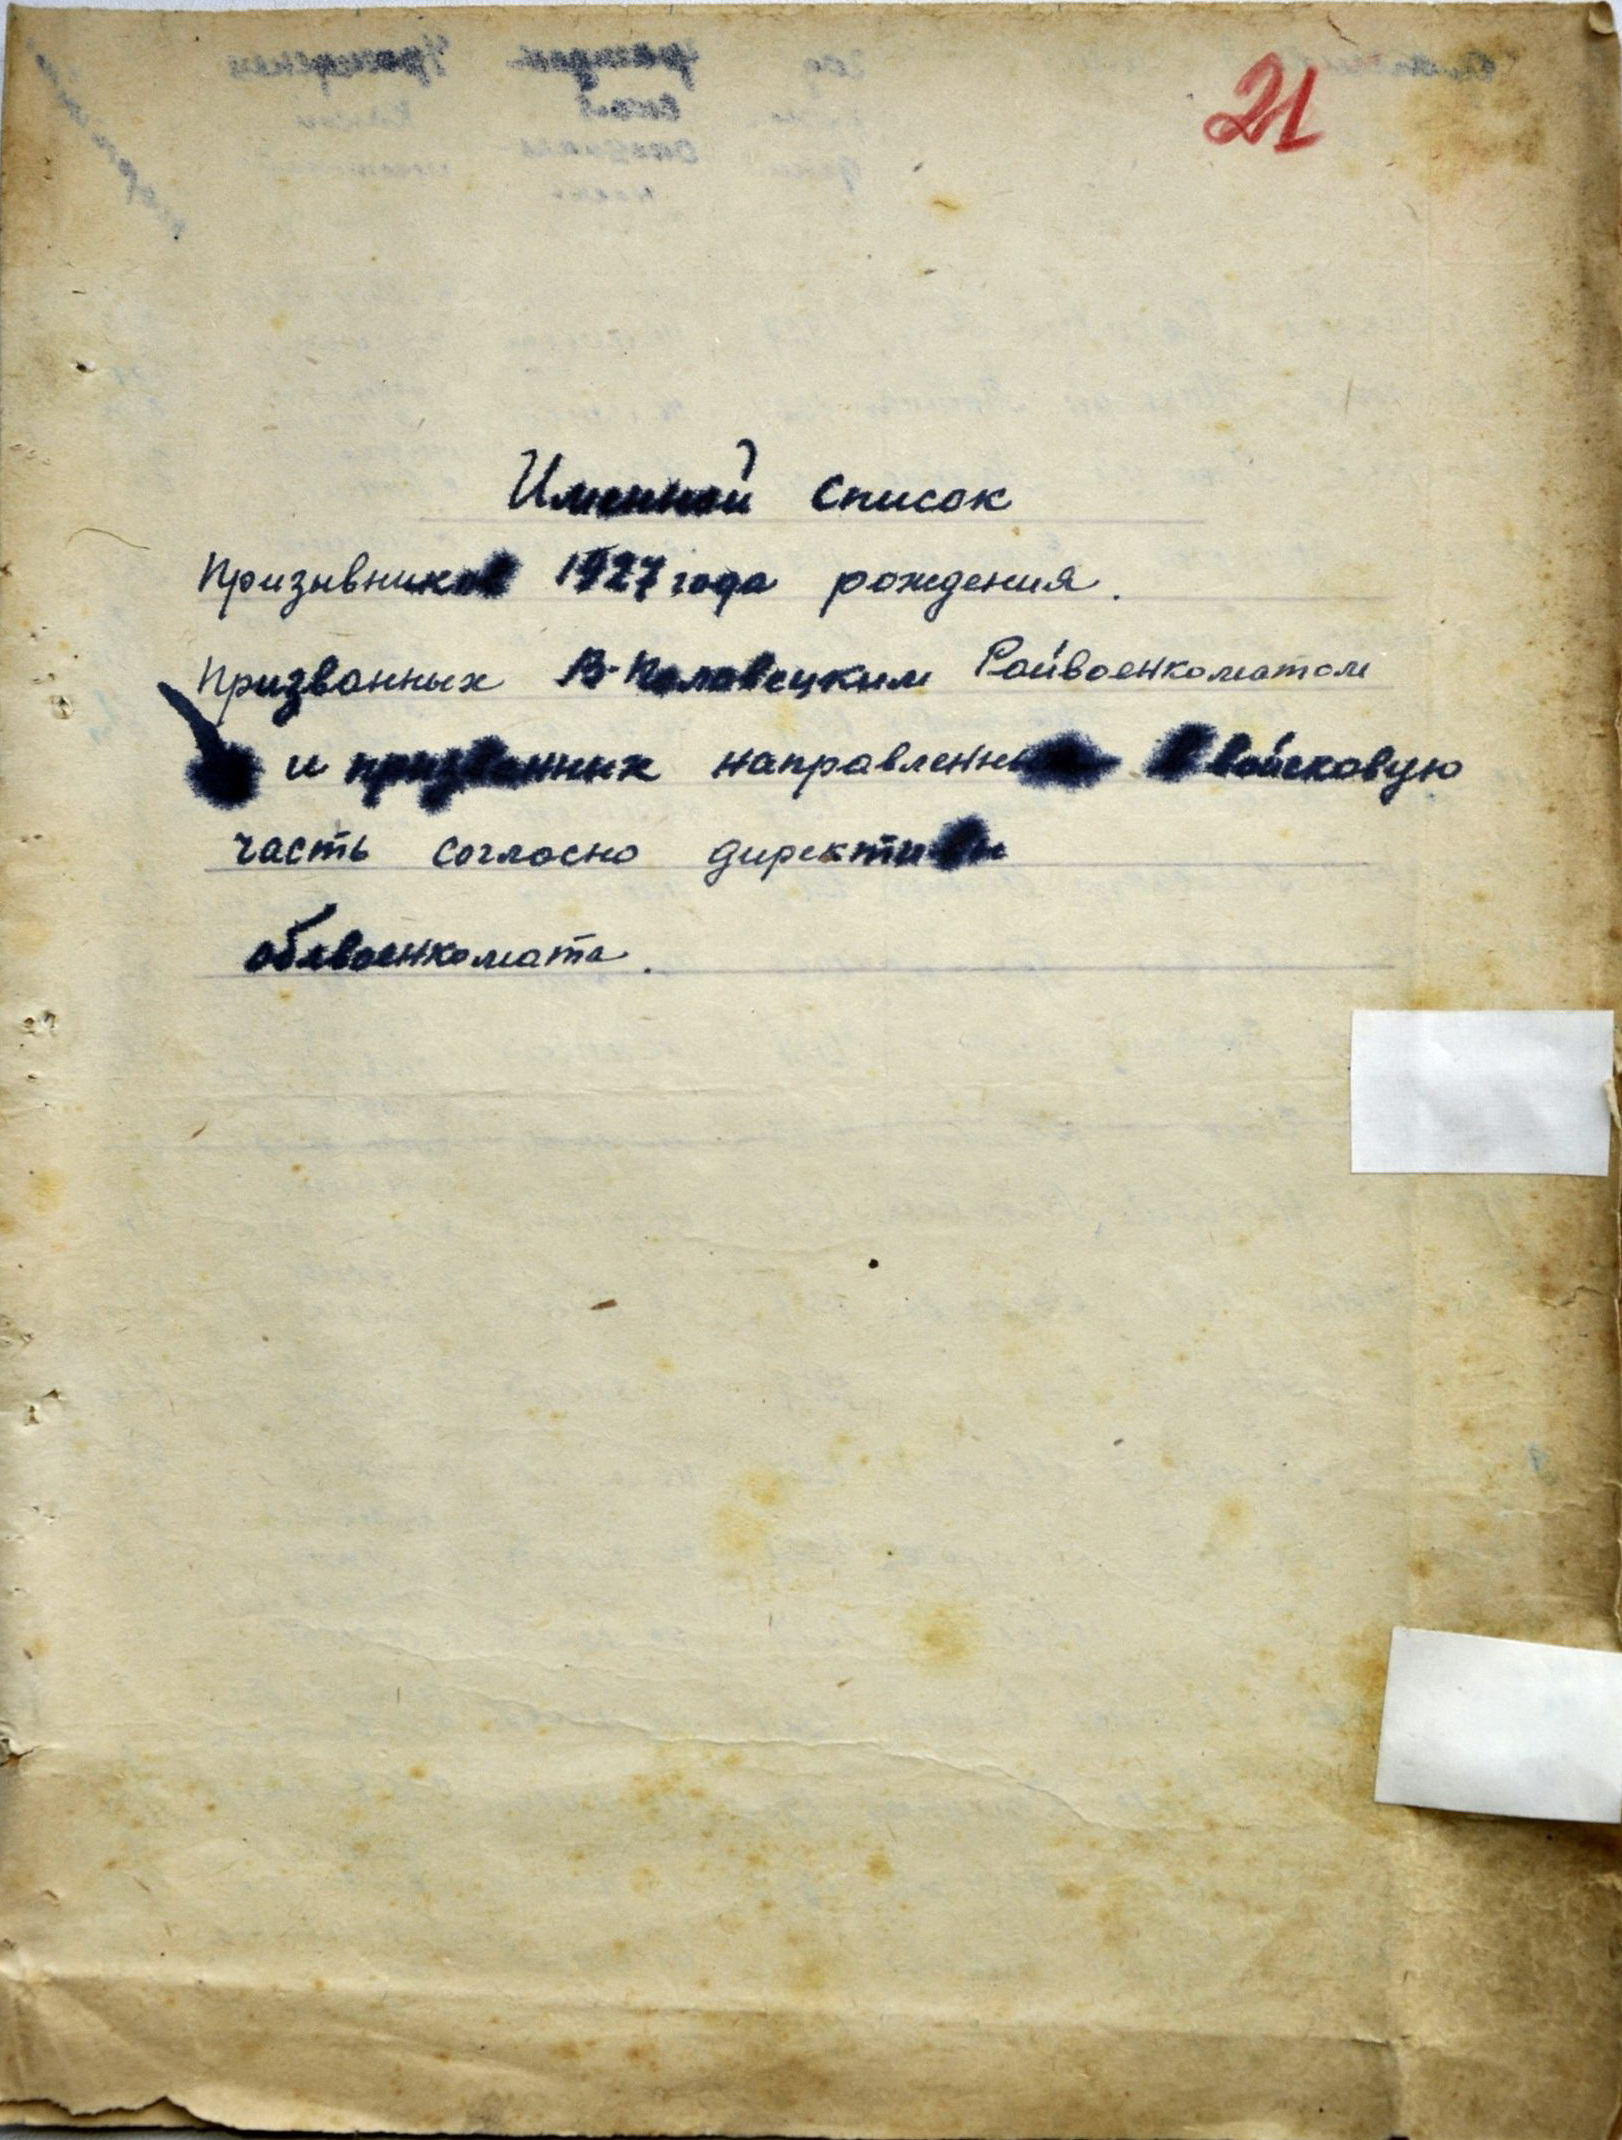 21
Именной список
Призывников 1927 года рождения.
Призванных В-Половецким Райвоенкоматом
и призванных направленных в войсковую
часть согласно директивы
облвоенкомата.